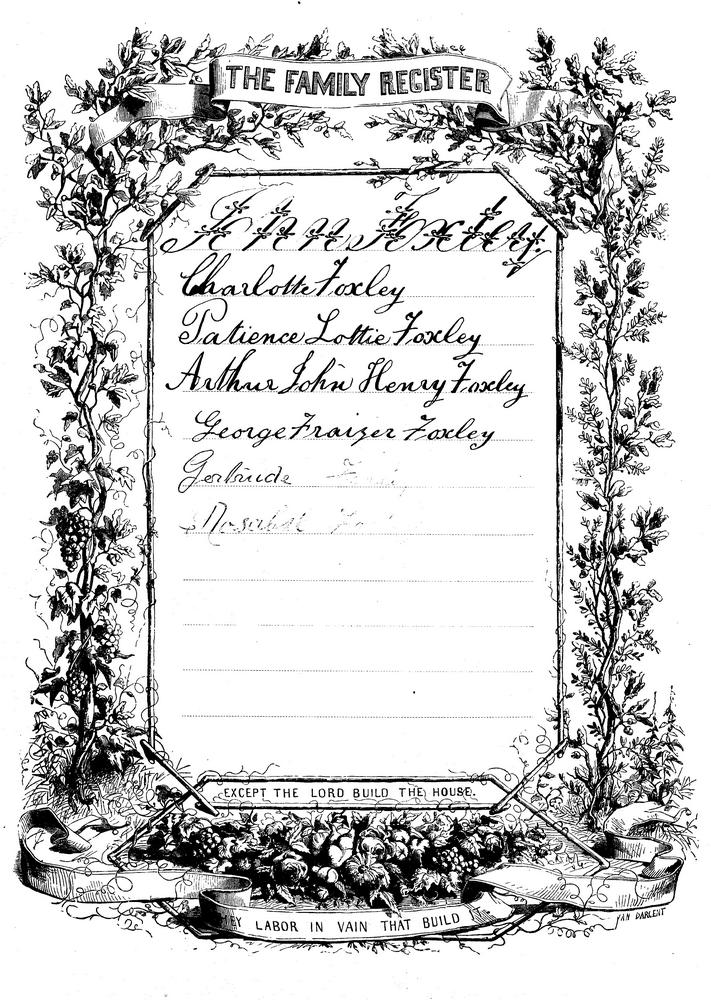 THE FAMILY REGISTER
Ann Foxley.
Charlotte Foxley
Patience Lottie Foxley
Arthur John Henry Foxley
George Fraizer Foxley
Gertrude
EXCEPT THE LORD BUILD THE HOUSE.
LABOR IN VAIN THAT BUILD
YAN DARGENT